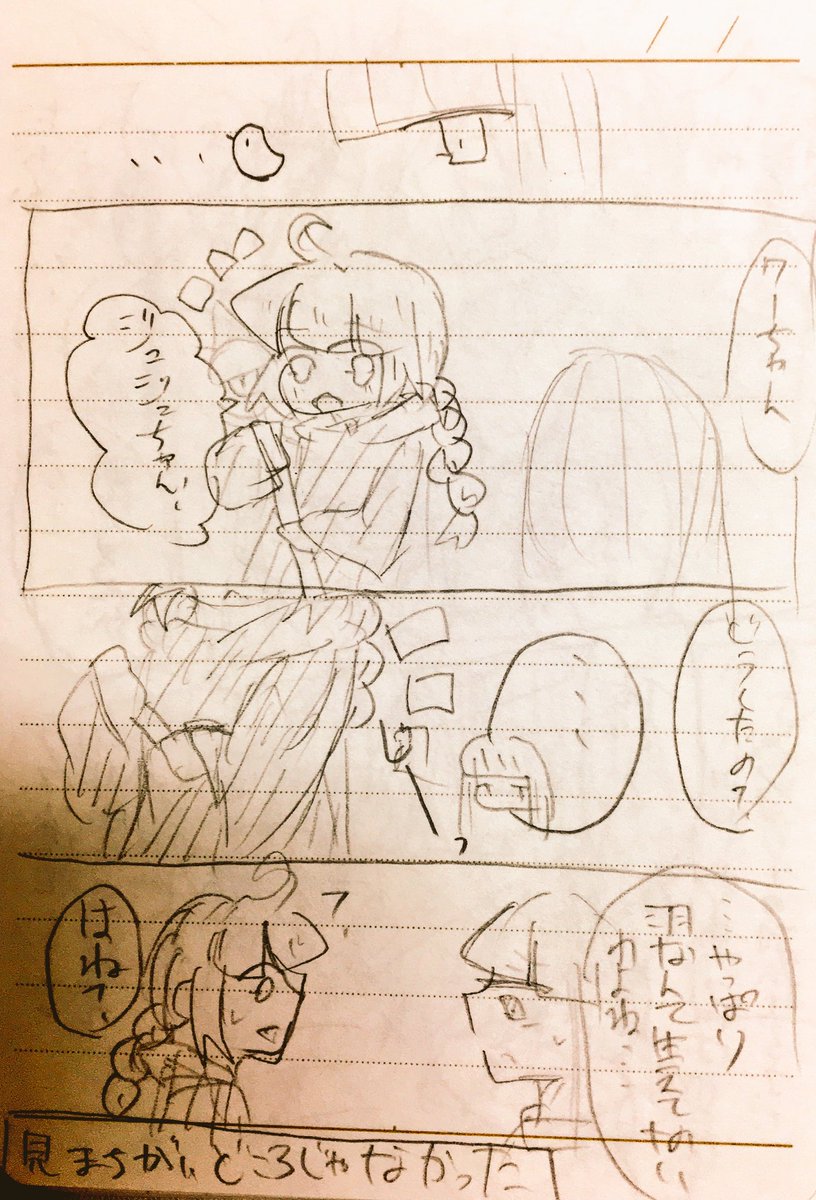 ワーちゃん
ジュジュちゃん、
どうしたの？
・・・
…やっぱり
羽なんて生えてない
わよね…
はね？、
見まちがいどころじゃなかった